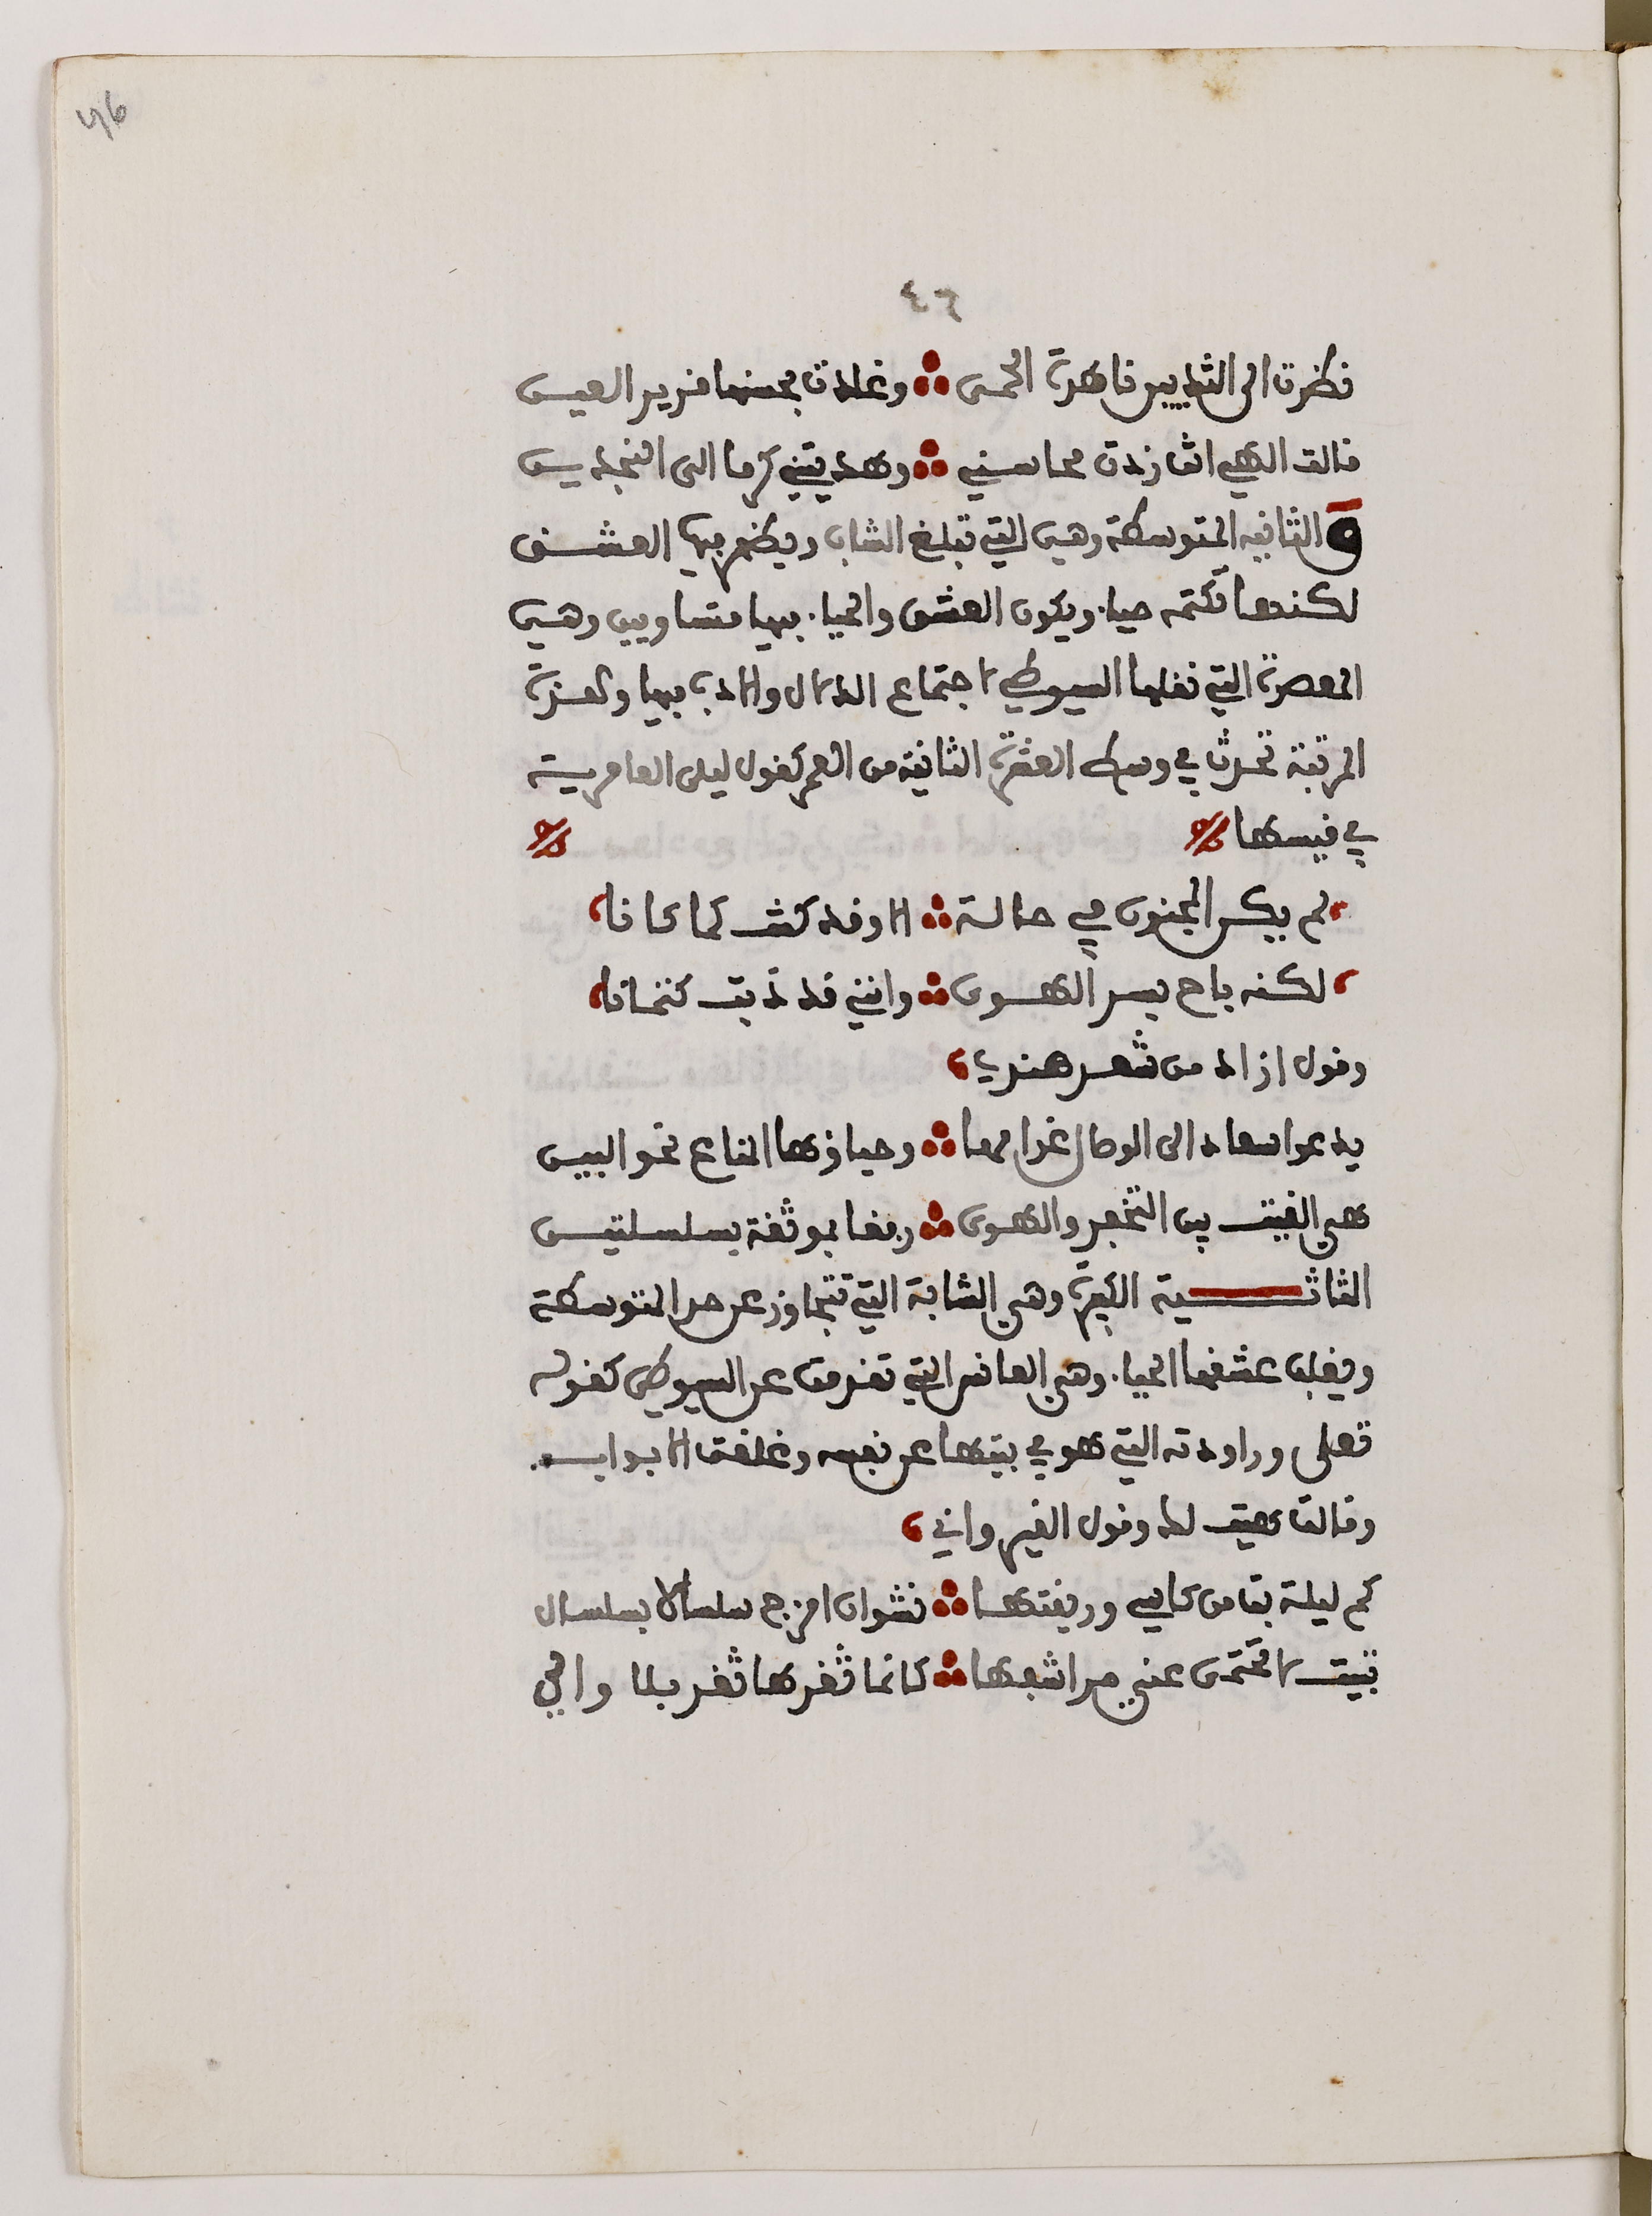 46
٤٦
نظرت الى الثديين ناهدة الحمى ∴ وغدت بحسنها قرير العين
قالت الهي انت زدت محاسني ∴ وهديتني كرما الى النجدين
والثانيه المتوسطة وهي التي تبلغ الشاب ويظهر فيها العشق
لكنها تكتمه حياء ويكون العشق والحياء فيها متساويين وهي
المعصرة التي نقلها السيوطي لاجتماع الدلال والادب فيها ولعزة
المرتبة تحدث في وسط العشرة الثانية من العمر كقول ليلى العامرية
في قيسها
لم يكن المجنون في حالة ∴ الا وقد كنت كما كانا
لكنه باح بسر الهوى ∴ وانني قد ذبت كتمانا
وقول ازاد من شعر هندي
يدعوا سعاد الى الوصال غرامها ∴ وحياؤها الداع نحو البين
هي القيت بين التخفر والهوى ∴ رفقا بموثقة بسلسلتين
الثالثـة الكبيرة وهي الشابة التي تتجاوز عن حد المتوسطة
ويغلب عشقها الحياء وهي العانس التي تقدمت عن السيوطي كقوله
تعلى وراودته التي هو في بيتها عن نفسه وغلقت الابواب
وقالت هيت لك وقول القيرواني
كم ليلة بت من كاسي وريقتها ∴ نشوان امزج سلسالا بسلسال
تبيت لا تحتمى عني مراشفها ∴ كانما ثغرها ثغر بلا والي